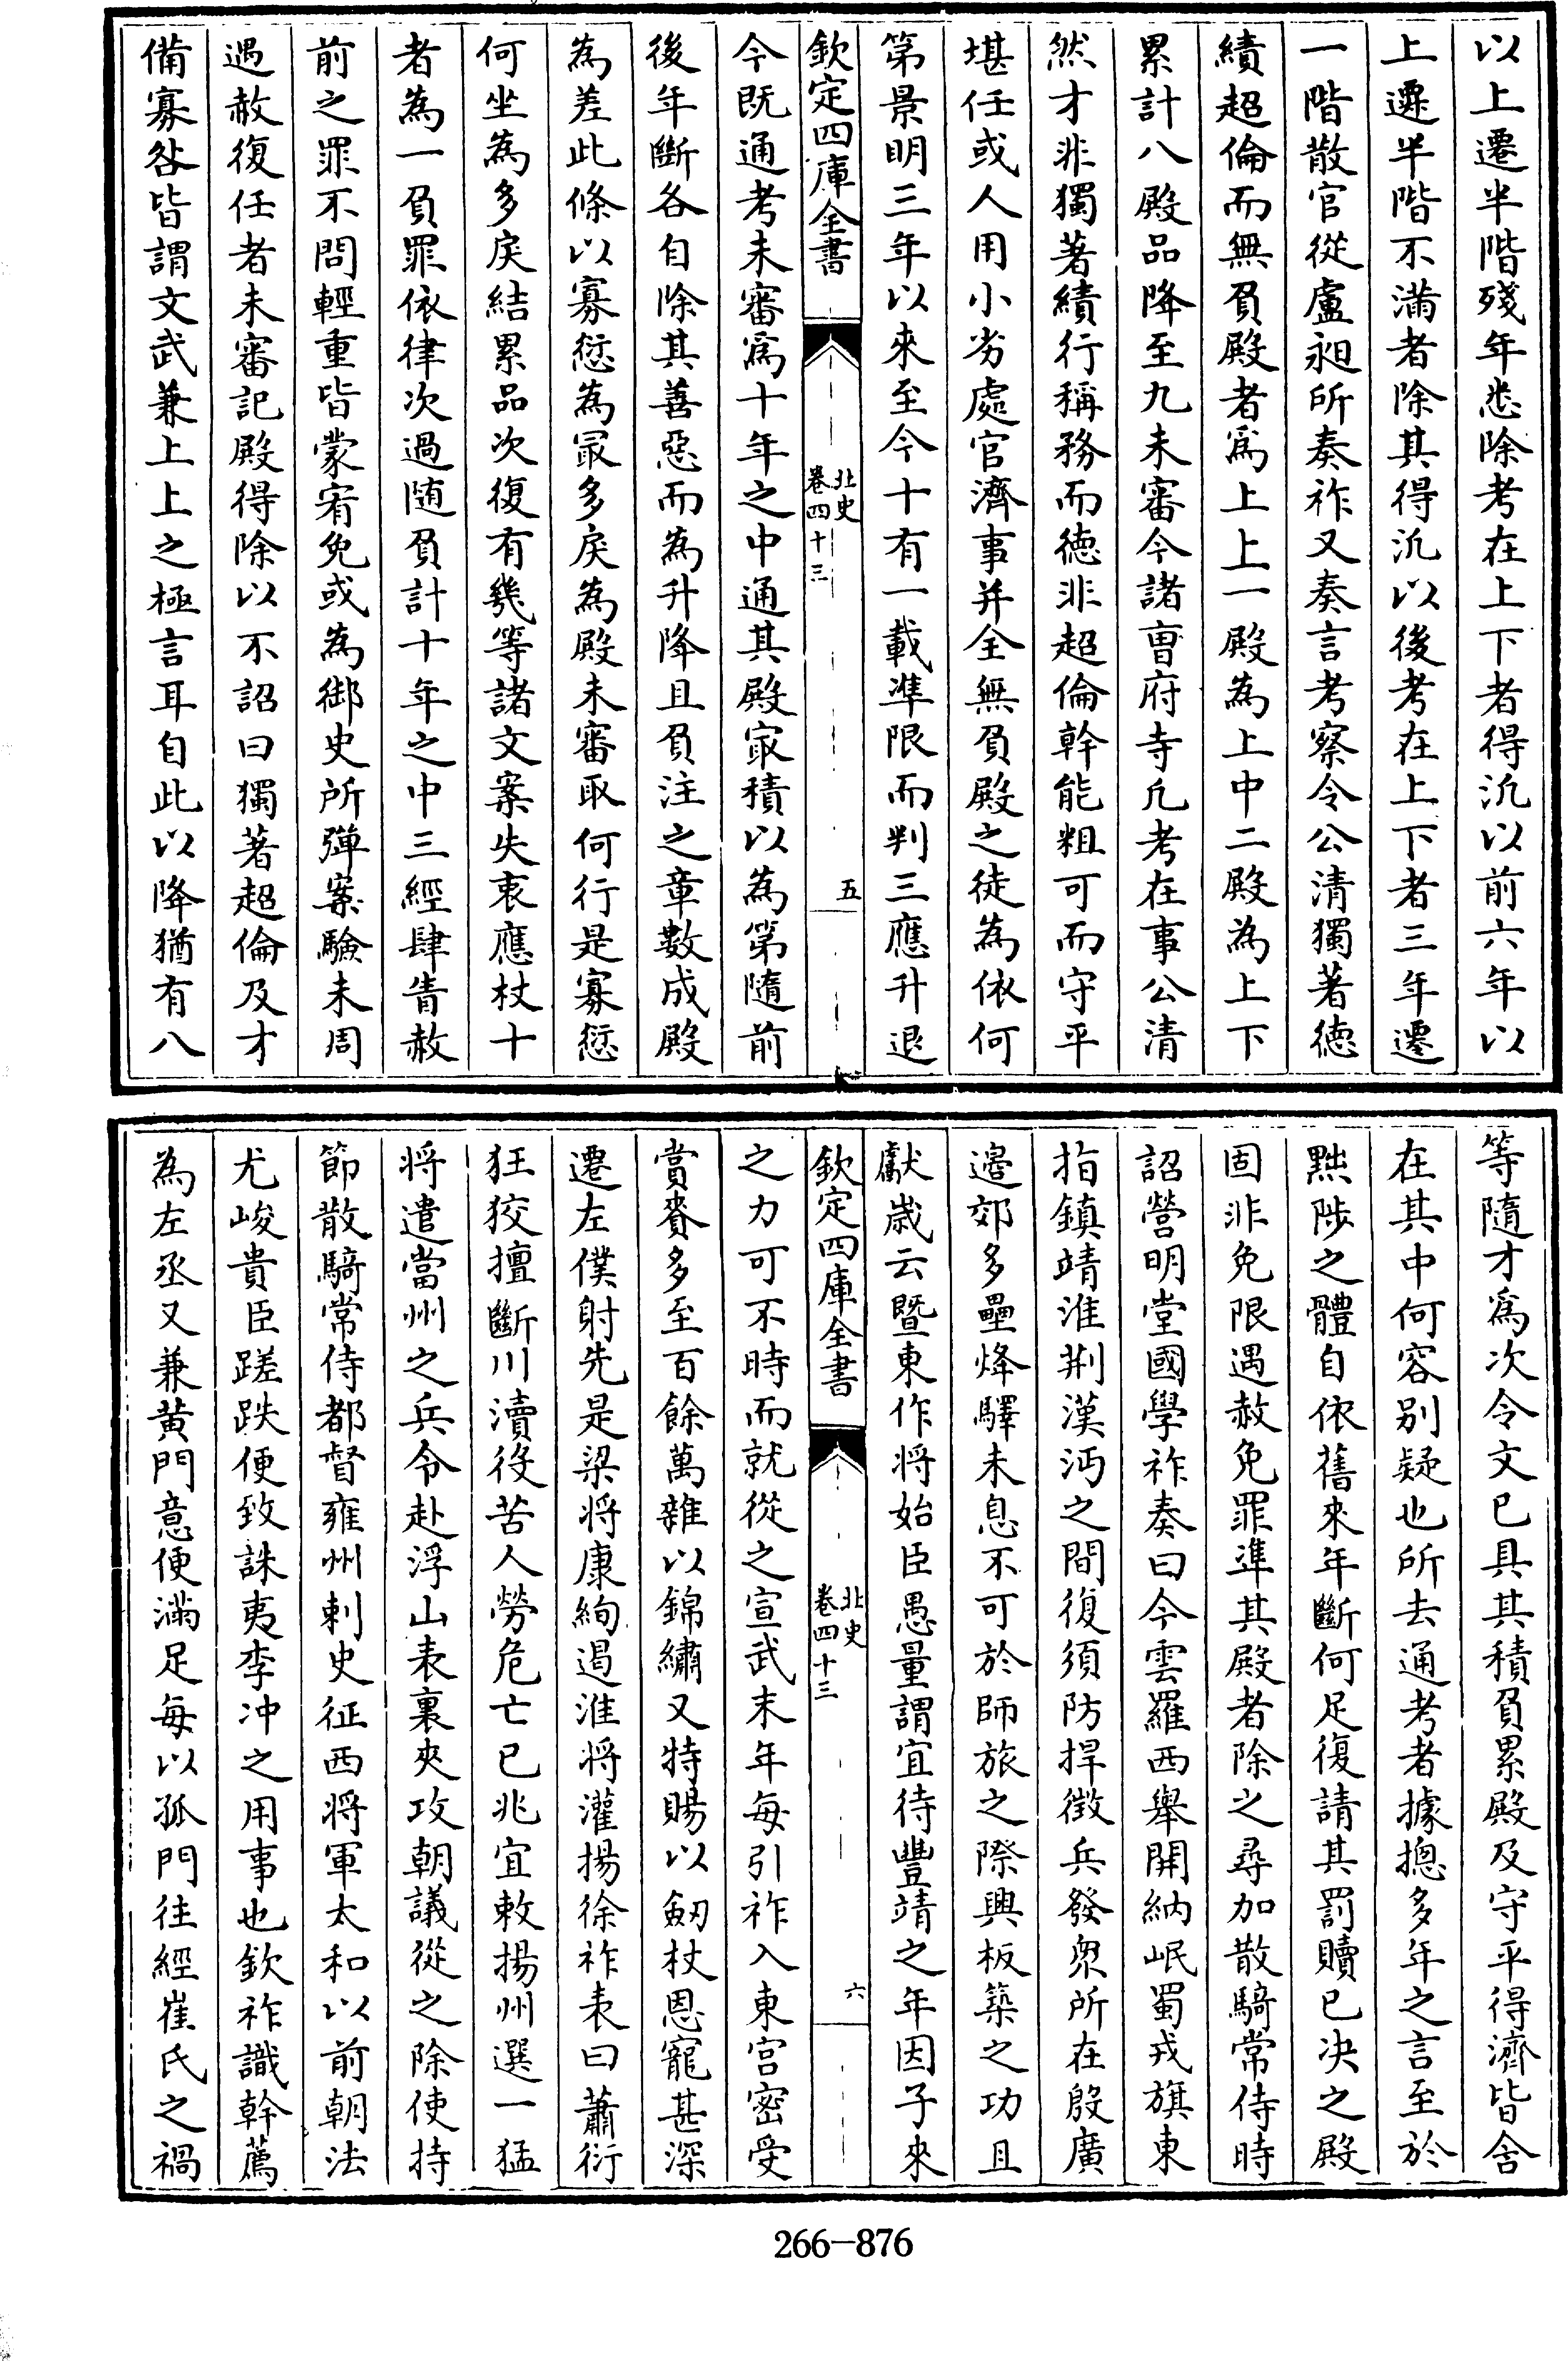 以上遷半階殘年悉除考在上下者得氿以前六年以
上遷半階不滿者除其得氿以後考在上下者三年遷
一階散官從盧昶所奏祚又奏言考察令公清獨著德
績超倫而無負殿者爲上上一殿為上中二殿為上下
累計八殿品降至九未審今諸曹府寺凡考在事公清
然才非獨著績行稱務而德非超倫幹能粗可而守平
堪任或人用小劣處官濟事并全無負殿之徒為依何
第景明三年以來至今十有一載準限而判三應升退
欽定四庫全書
北史
卷四十三
五
今既通考未審爲十年之中通其殿冣積以為第隨前
後年斷各自除其善惡而為升降且負注之章數成殿
為差此條以寡愆為冣多戾為殿未審取何行是寡愆
何坐為多戾結累品次復有幾等諸文案失衷應杖十
者為一負罪依律次過随負計十年之中三經肆眚赦
前之罪不問輕重皆蒙宥免或為御史所彈案驗未周
遇赦復任者未審記殿得除以不詔曰獨著超倫及才
備寡咎皆謂文武兼上上之極言耳自此以降猶有八
等隨才爲次令文已具其積負累殿及守平得濟皆含
在其中何容别疑也所去通考者據摠多年之言至於
黜陟之體自依舊來年斷何足復請其罰贖已决之殿
固非免限遇赦免罪準其殿者除之尋加散騎常侍時
詔營明堂國學祚奏曰今雲羅西舉開納岷蜀戎旗東
指鎮靖淮荆漢沔之間復須防捍徴兵發衆所在殷廣
邉郊多壘烽驛未息不可於師旅之際興板築之功且
獻歳云暨東作將始臣愚量謂宜待豐靖之年因子來
欽定四庫全書
北史
卷四十三
六
之力可不時而就從之宣武末年每引祚入東宫密受
賞賚多至百餘萬雜以錦繡又特賜以劒杖恩寵甚深
遷左僕射先是梁将康絢遏淮将灌揚徐祚表曰蕭衍
狂狡擅斷川瀆役苦人勞危亡已兆宜敕揚州選一猛
将遣當州之兵令赴浮山表裏夾攻朝議從之除使持
節散騎常侍都督雍州刺史征西將軍太和以前朝法
尤峻貴臣蹉跌便致誅夷李冲之用事也欽祚識幹薦
為左丞又兼黄門意便滿足每以孤門往經崔氏之禍
266—876